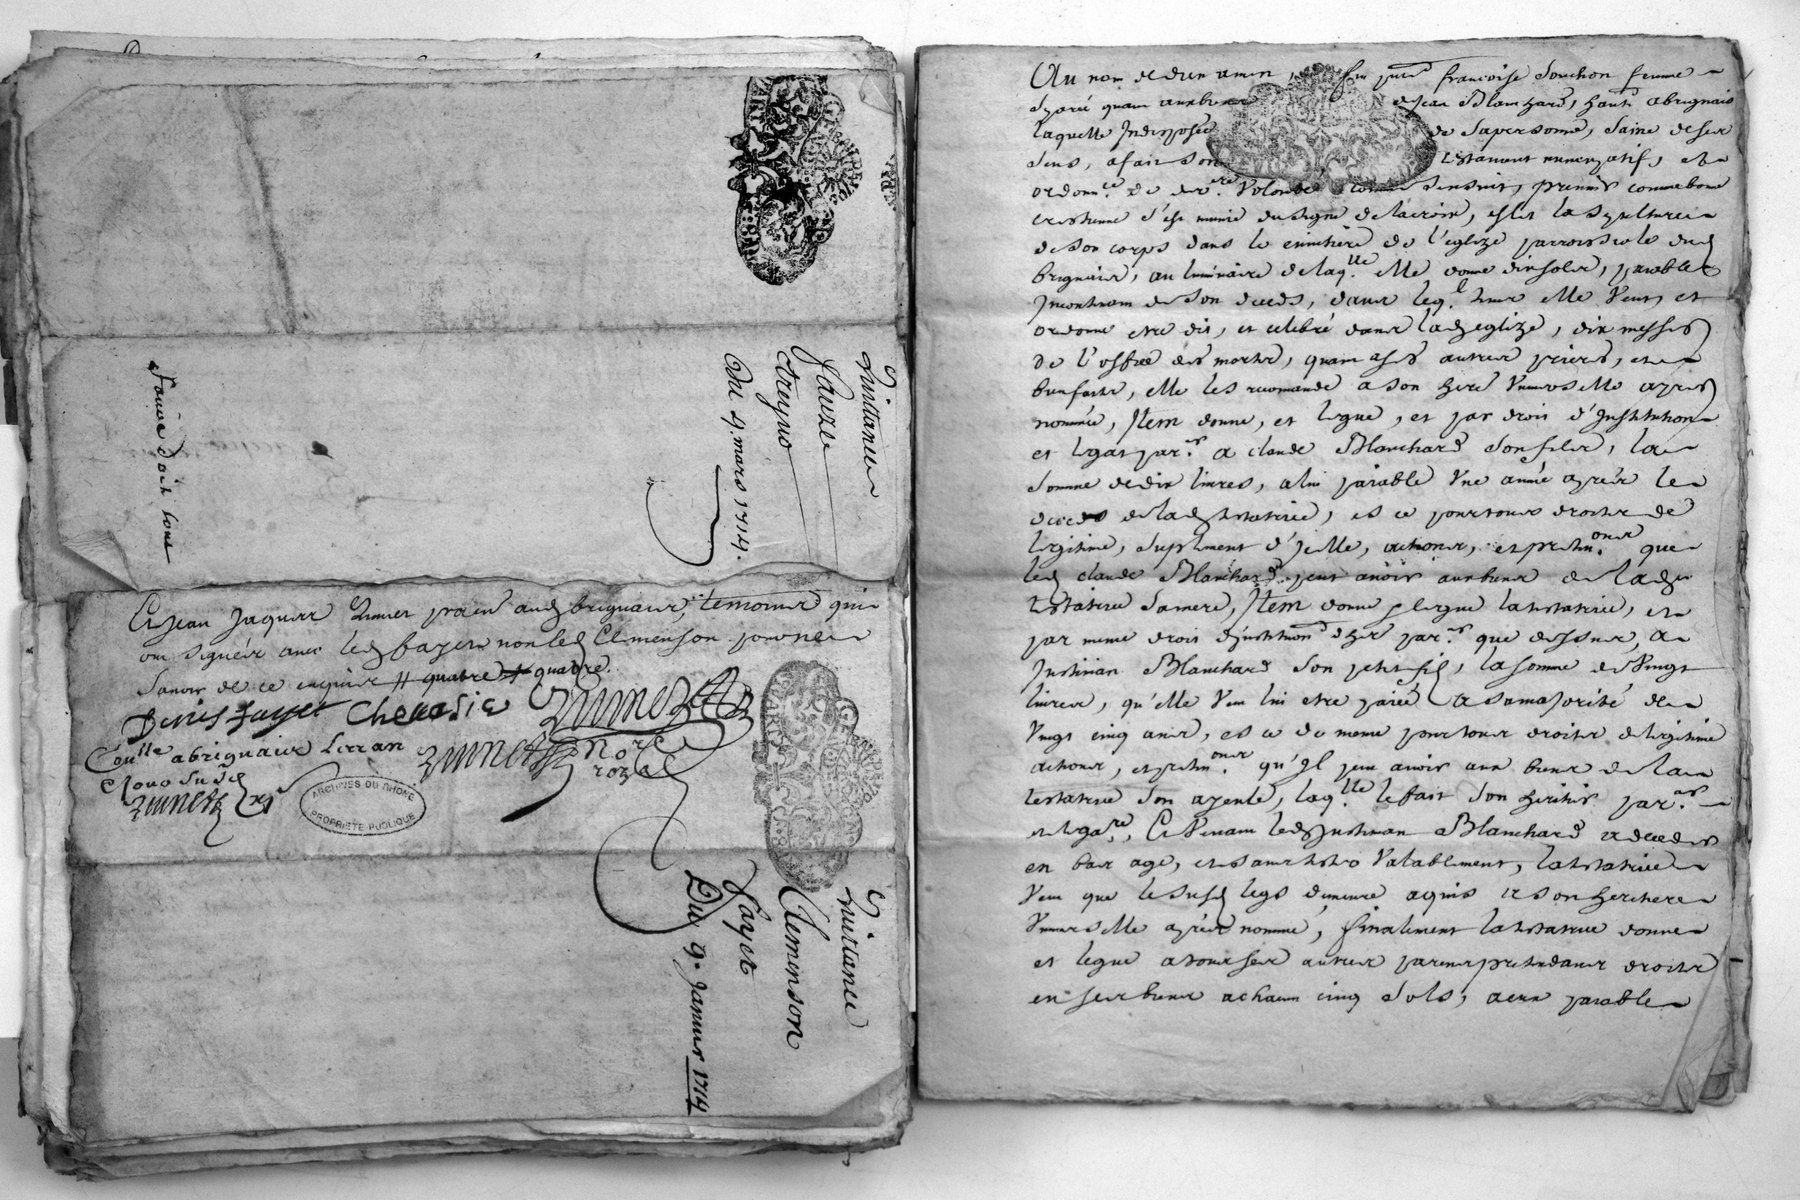 Quittance
Fauze
Treyno
Du 9. mars 1714.
Et Jean Jaques Zimet prat. aud brignais, temoins qui
ont signés avec led fayet non led Clemenson pour ne
savoir de ce enquis # quatre # quatre
Denis fayet Chevasie
Coulle abrignais
ARCHIVES DU RHONE
PROPRIÉTÉ PUBLIQUE
Quittance
Clemenson
fayet
Du 9. Janvier 1714
Au nom de dieu amen, fut pnte francoise Souchon femme
separée quant aux biens de Jean Blanchard, habt abrignais
laquelle Indisposée de sapersonne, saine de ses
sens, a fait son testament nuncupatif, et
ordonce de derre Volonté comme sensuit, premier comme bonne
crestienne s'est munie du signe de lacroix, eslit la sepulture
de son corps dans le cimetière de l'eglize parroissiale dud
brignais, au luminaire de laqlle elle donne dix solz, paiable
Incontinant de son deceds, dans leql tems elle Veut, et
ordonne etre dit, et celebré dans lad eglize, dix messes
de l'office des morts, quant a ses autres prieres, et
bienfaits, elle les recomande a son here Universelle apres
nommée, Item donne, et legue, et par droit d'Institution
et legat parer a claude Blanchard son fils, la
somme de dix livres, a lui paiable Une année après le
deceds de lad testatrice, et ce pour tous droits de
legitime, suplement d'Jcelle, actions, et pretnons que
led claude Blanchard peut avoir aux biens de lad
testatrice sa mere, Item donne et legue la testatrice, et
par meme droit d'jnstitution d'her parer que dessus, a
Justinian Blanchard son petit fils, la somme de Vingt
livres, qu'elle Veut lui etre paiée a sa majorité de
Vingt cinq ans, et ce de meme pour tous droits de legitime
actions, et pretnons qu'Jl peut avoir aux biens de la
testatrice son ayeule, laqlle le fait son heritier parer
et legare, Et Venant led Justinian Blanchard a deceder
en bas age, et sans tester Valablement, la testatrice
Veut que le susd legs demeure aquis a son heritiere
Universelle après nommée, finalement la testatrice donne
et legue a tous ses autres parens pretendans droits
en ses biens a chacun cinq sols, a eux paiable